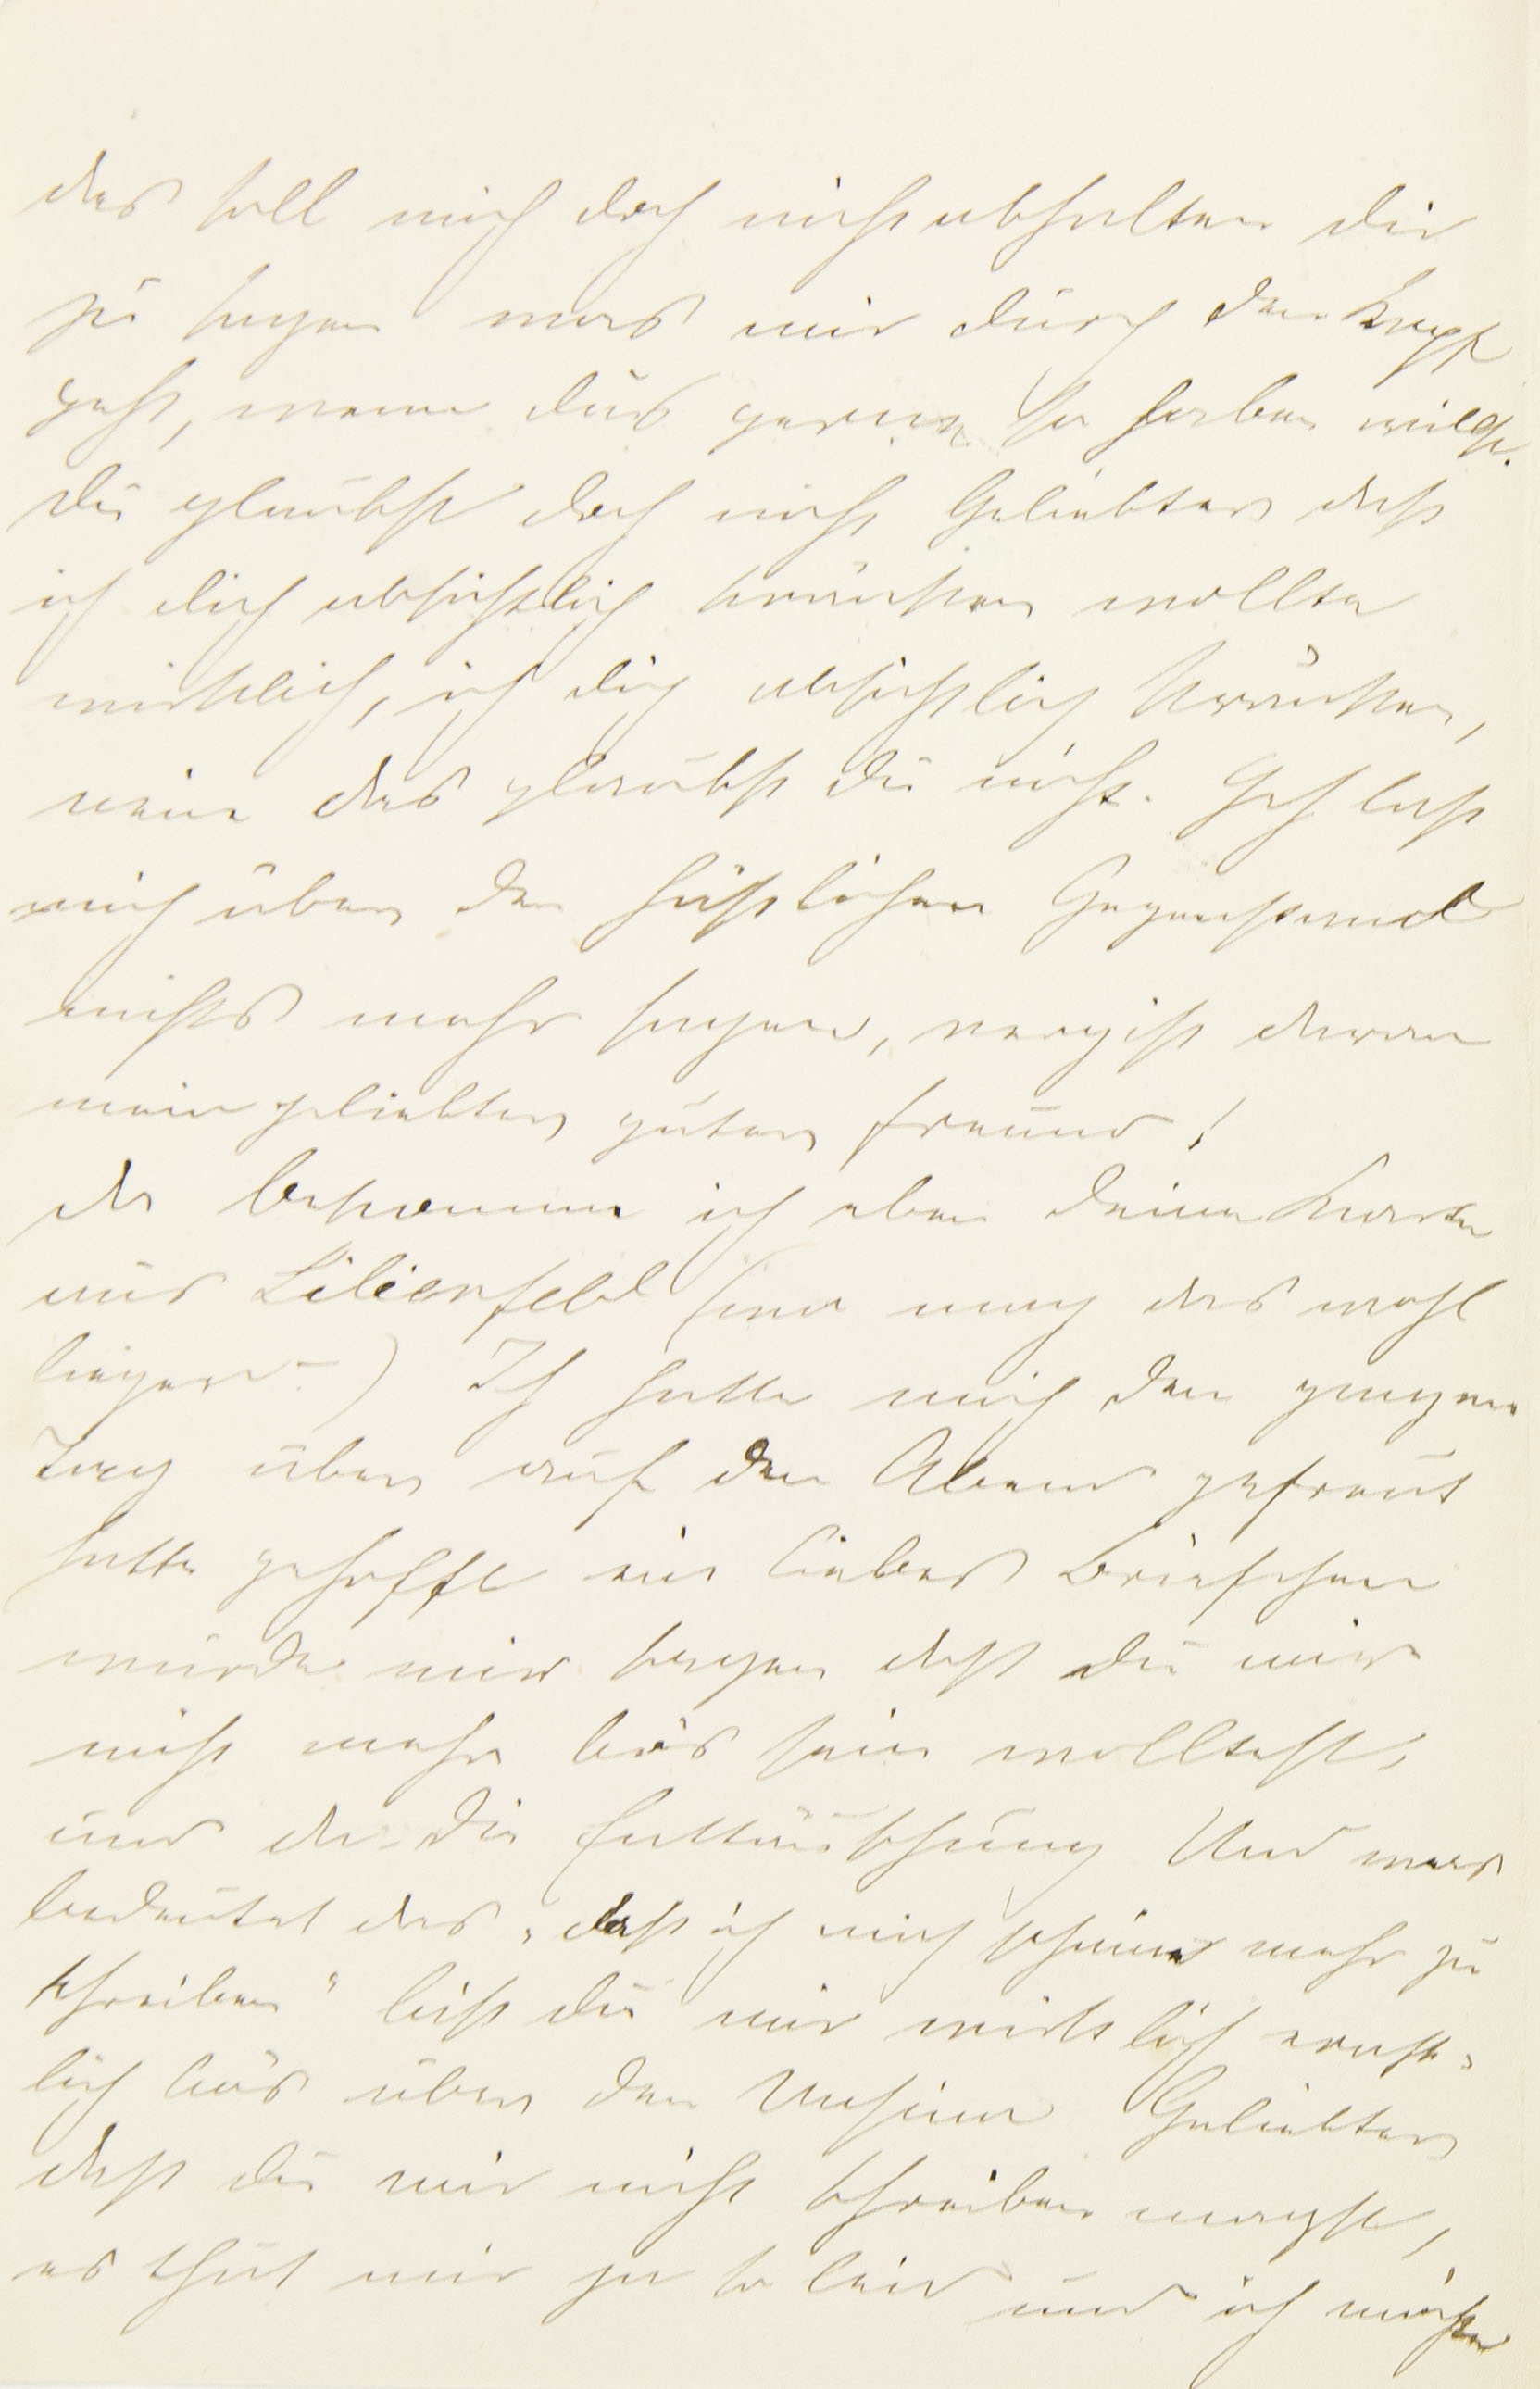 das soll mich doch nicht abhalten dir
zu sagen was mir durch den Kopf
geht, wenn du's gerne so haben willst.
Du glaubst doch nicht Geliebter daß
ich dich absichtlich kränken wollte
wirklich, ich dich absichtlich kränken,
nein das glaubst du nicht. Geh laß
mich über den häßlichen Gegenstand
nichts mehr sagen, vergiß daran
mein geliebter guter Freund!
Da bekomme ich eben deine Karte
aus Lilienfeld (wo mag das wohl
liegen –) Ich hatte mich den ganzen
Tag über auf den Abend gefreut
hatte gehofft ein liebes Briefchen
würde mir sagen daß du mir
nicht mehr bös sein wolltest,
und da die Enttäuschung Und was
bedeutet das „daß ich mich schäme mehr zu
schreiben" bist du mir wirklich ernst-
lich bös über den Unsinn Geliebter
daß du mir nicht schreiben magst,
es thut mir ja so leid und ich möchte